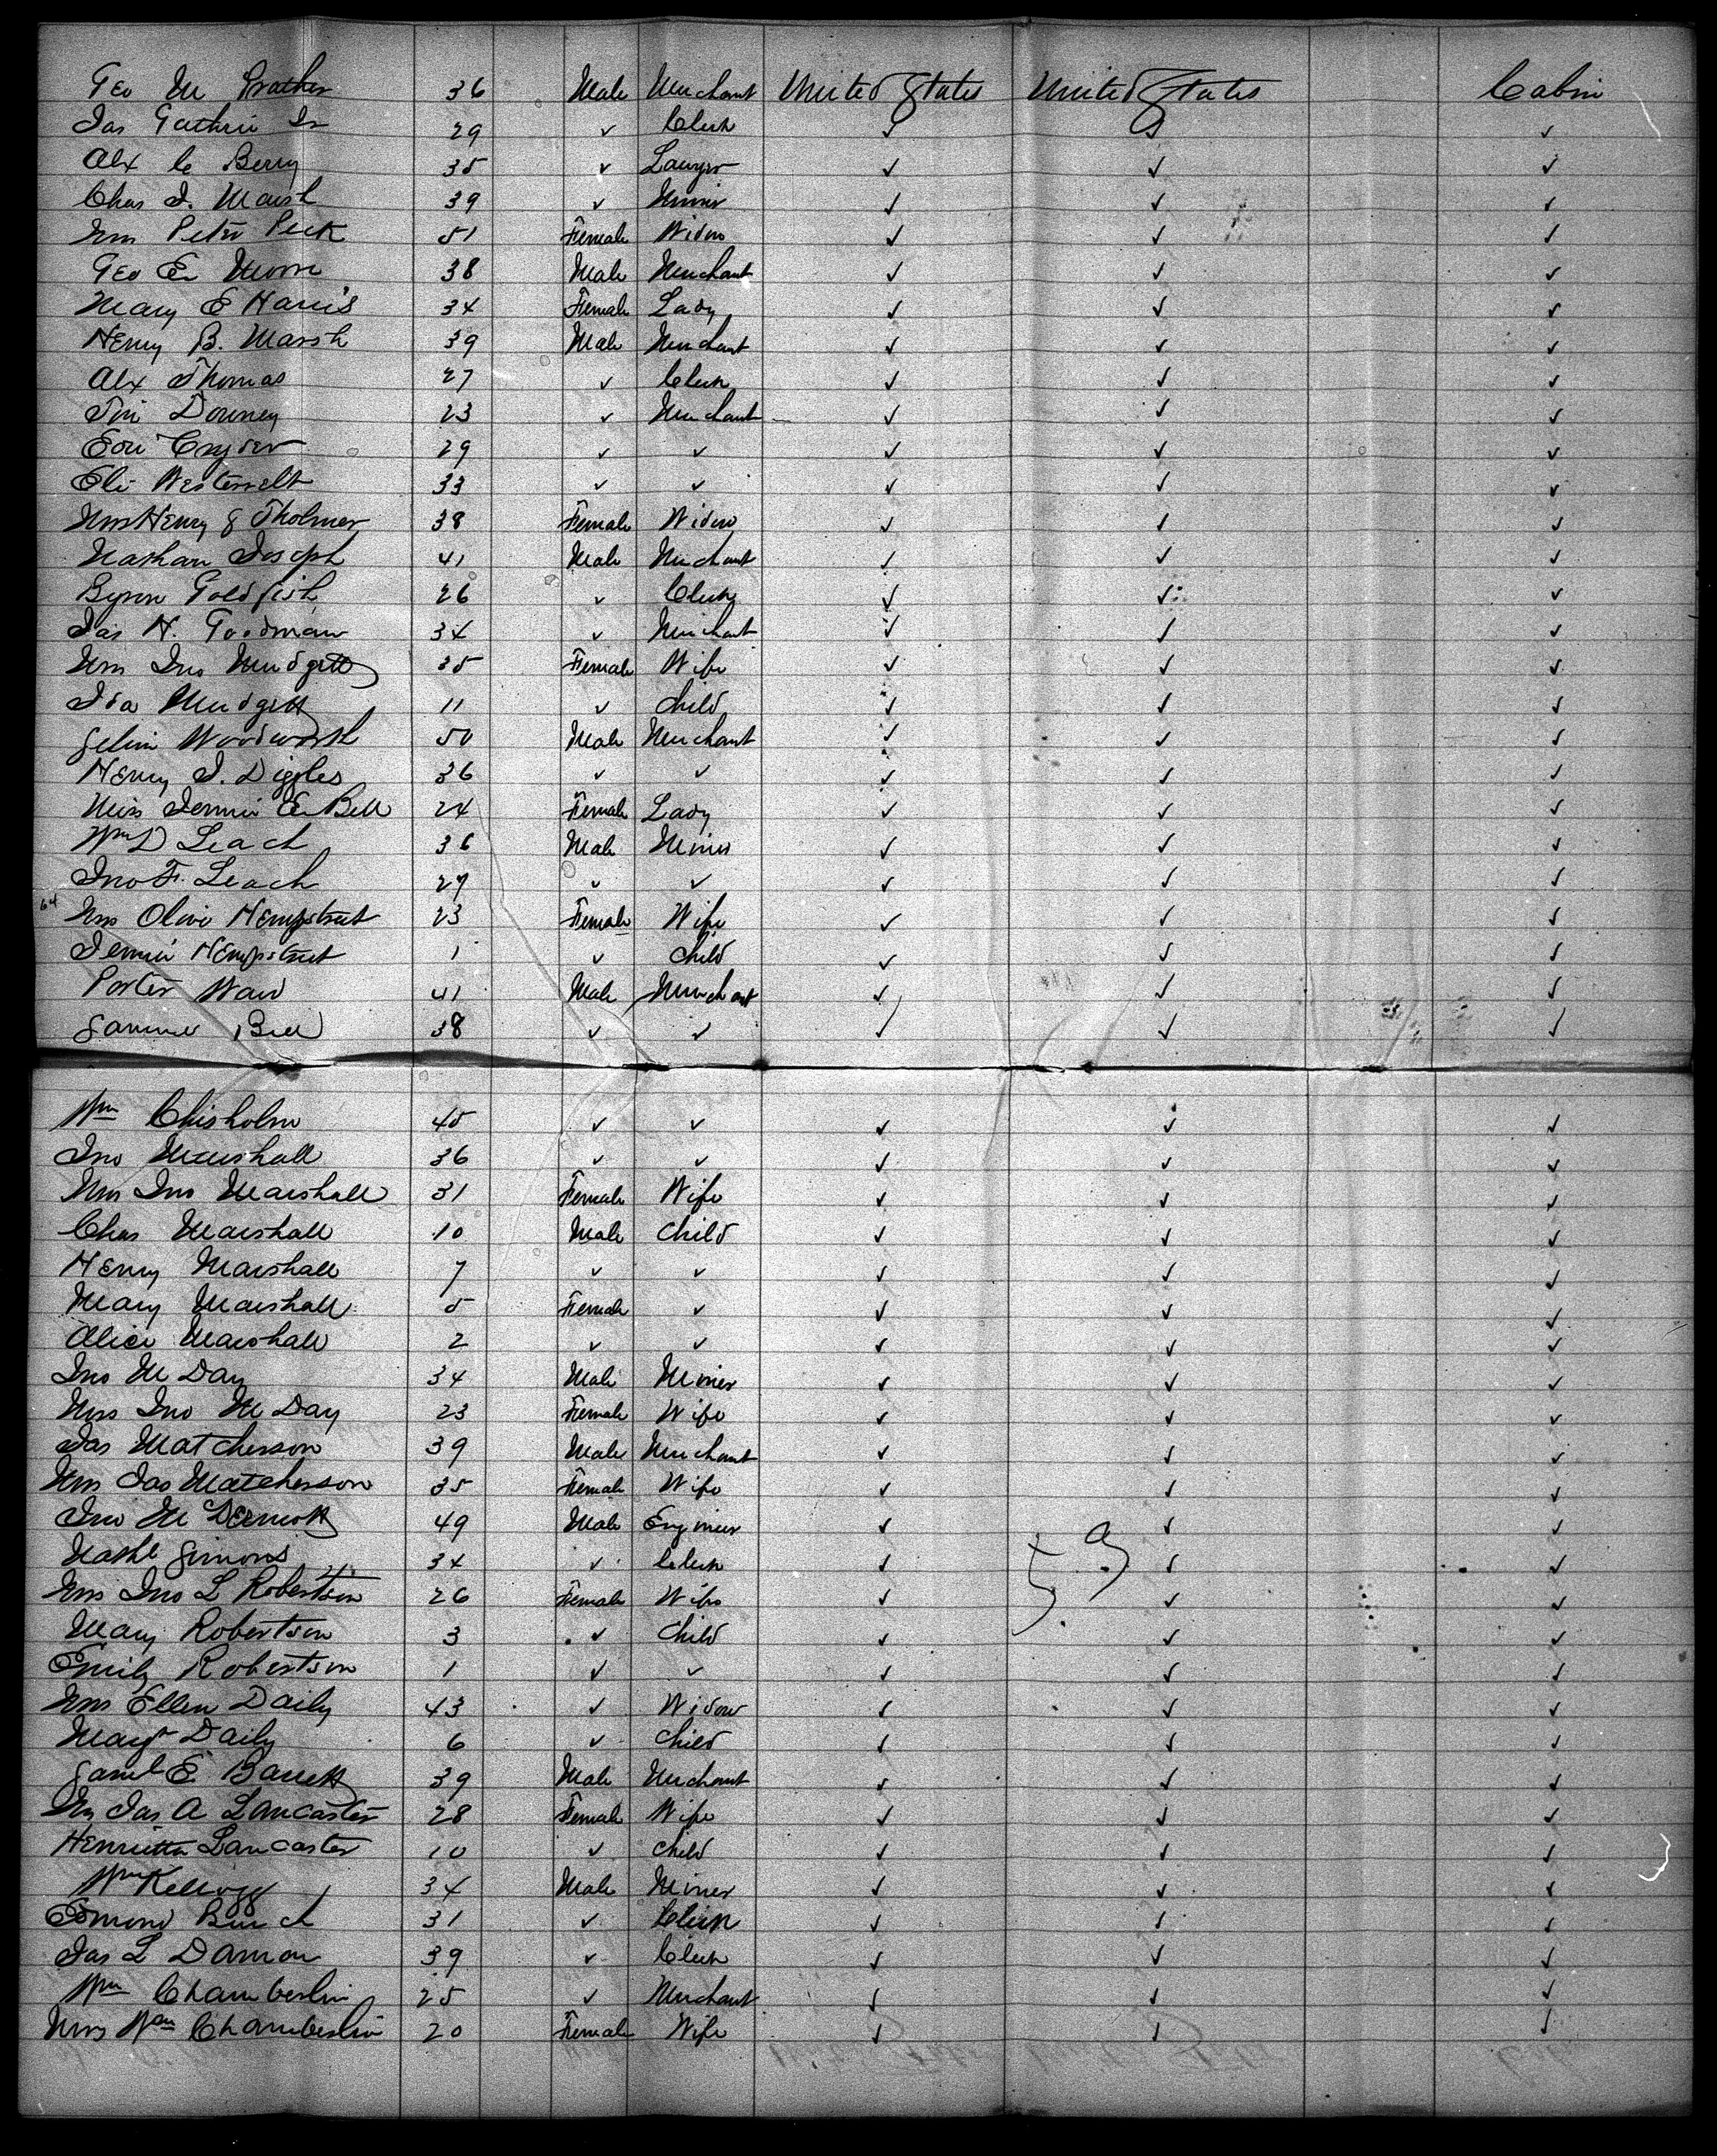 Geo M Prather 36 Male Merchant United States United States Cabin
Jas Guthrie Jr 29 ✓ Clerk ✓ ✓ ✓
Alx C Berry 35 ✓ Lawyer ✓ ✓ ✓
Chas J. Marsh 39 ✓ Miner ✓ ✓ ✓
Mrs Peter Peck 51 Female Widow ✓ ✓ ✓
Geo E Moore 38 Male Merchant ✓ ✓ ✓
Mary E Harris 34 Female Lady ✓ ✓ ✓
Henry B. Marsh 39 Male Merchant ✓ ✓ ✓
Alx Thomas 27 ✓ Clerk ✓ ✓ ✓
Downey 23 ✓ Merchant ✓ ✓ ✓
Edw Cryder 29 ✓ ✓ ✓ ✓ ✓
Eli Westervelt 33 ✓ ✓ ✓ ✓ ✓
Mrs Henry S Tholmer 38 Female Widow ✓ ✓ ✓
Nathan Joseph 41 Male Merchant ✓ ✓ ✓
Byron Goldfish 26 ✓ Clerk ✓ ✓ ✓
Jas H. Goodman 34 ✓ Merchant ✓ ✓ ✓
Mrs Jno Mudgett 35 Female Wife ✓ ✓ ✓
Ida Mudgett 11 ✓ Child ✓ ✓ ✓
Selim Woodworth 50 Male Merchant ✓ ✓ ✓
Henry J. Diggles 36 ✓ ✓ ✓ ✓ ✓
Miss Jennie E Bell 24 Female Lady ✓ ✓ ✓
Wm D Leach 36 Male Miner ✓ ✓ ✓
Jno F. Leach 27 ✓ ✓ ✓ ✓ ✓
64 Mrs Olive Hempstreet 23 Female Wife ✓ ✓ ✓
Jennie Hempstreet 1 ✓ Child ✓ ✓ ✓
Porter Ward 41 Male Merchant ✓ ✓ ✓
Samuel Bell 38 ✓ ✓ ✓ ✓ ✓
Wm Chisholm 45 ✓ ✓ ✓ ✓ ✓
Jno Marshall 36 ✓ ✓ ✓ ✓ ✓
Mrs Jno Marshall 31 Female Wife ✓ ✓ ✓
Chas Marshall 10 Male Child ✓ ✓ ✓
Henry Marshall 7 ✓ ✓ ✓ ✓ ✓
Mary Marshall 5 Female ✓ ✓ ✓ ✓
Alice Marshall 2 ✓ ✓ ✓ ✓ ✓
Jno M Day 34 Male Miner ✓ ✓ ✓
Mrs Jno M Day 23 Female Wife ✓ ✓ ✓
Jas Matcherson 39 Male Merchant ✓ ✓ ✓
Mrs Jas Matcherson 35 Female Wife ✓ ✓ ✓
Jno McDermott 49 Male Engineer ✓ ✓ ✓
Nathl Simons 34 ✓ Clerk ✓ 59 ✓ ✓
Mrs Jno L Robertson 26 Female Wife ✓ ✓ ✓
Mary Robertson 3 ✓ Child ✓ ✓ ✓
Emily Robertson 1 ✓ ✓ ✓ ✓ ✓
Mrs Ellen Daily 43 ✓ Widow ✓ ✓ ✓
Margt Daily 6 ✓ Child ✓ ✓ ✓
Saml E Barrett 39 Male Merchant ✓ ✓ ✓
Mrs Jas A Lancaster 28 Female Wife ✓ ✓ ✓
Henrietta Lancaster 10 ✓ Child ✓ ✓ ✓
Wm Kellogg 34 Male Miner ✓ ✓ ✓
Edmond Burch 31 ✓ Clerk ✓ ✓ ✓
Jas L Damon 39 ✓ Clerk ✓ ✓ ✓
Wm Chamberlin 25 ✓ Merchant ✓ ✓ ✓
Mrs Wm Chamberlin 20 Female Wife ✓ ✓ ✓